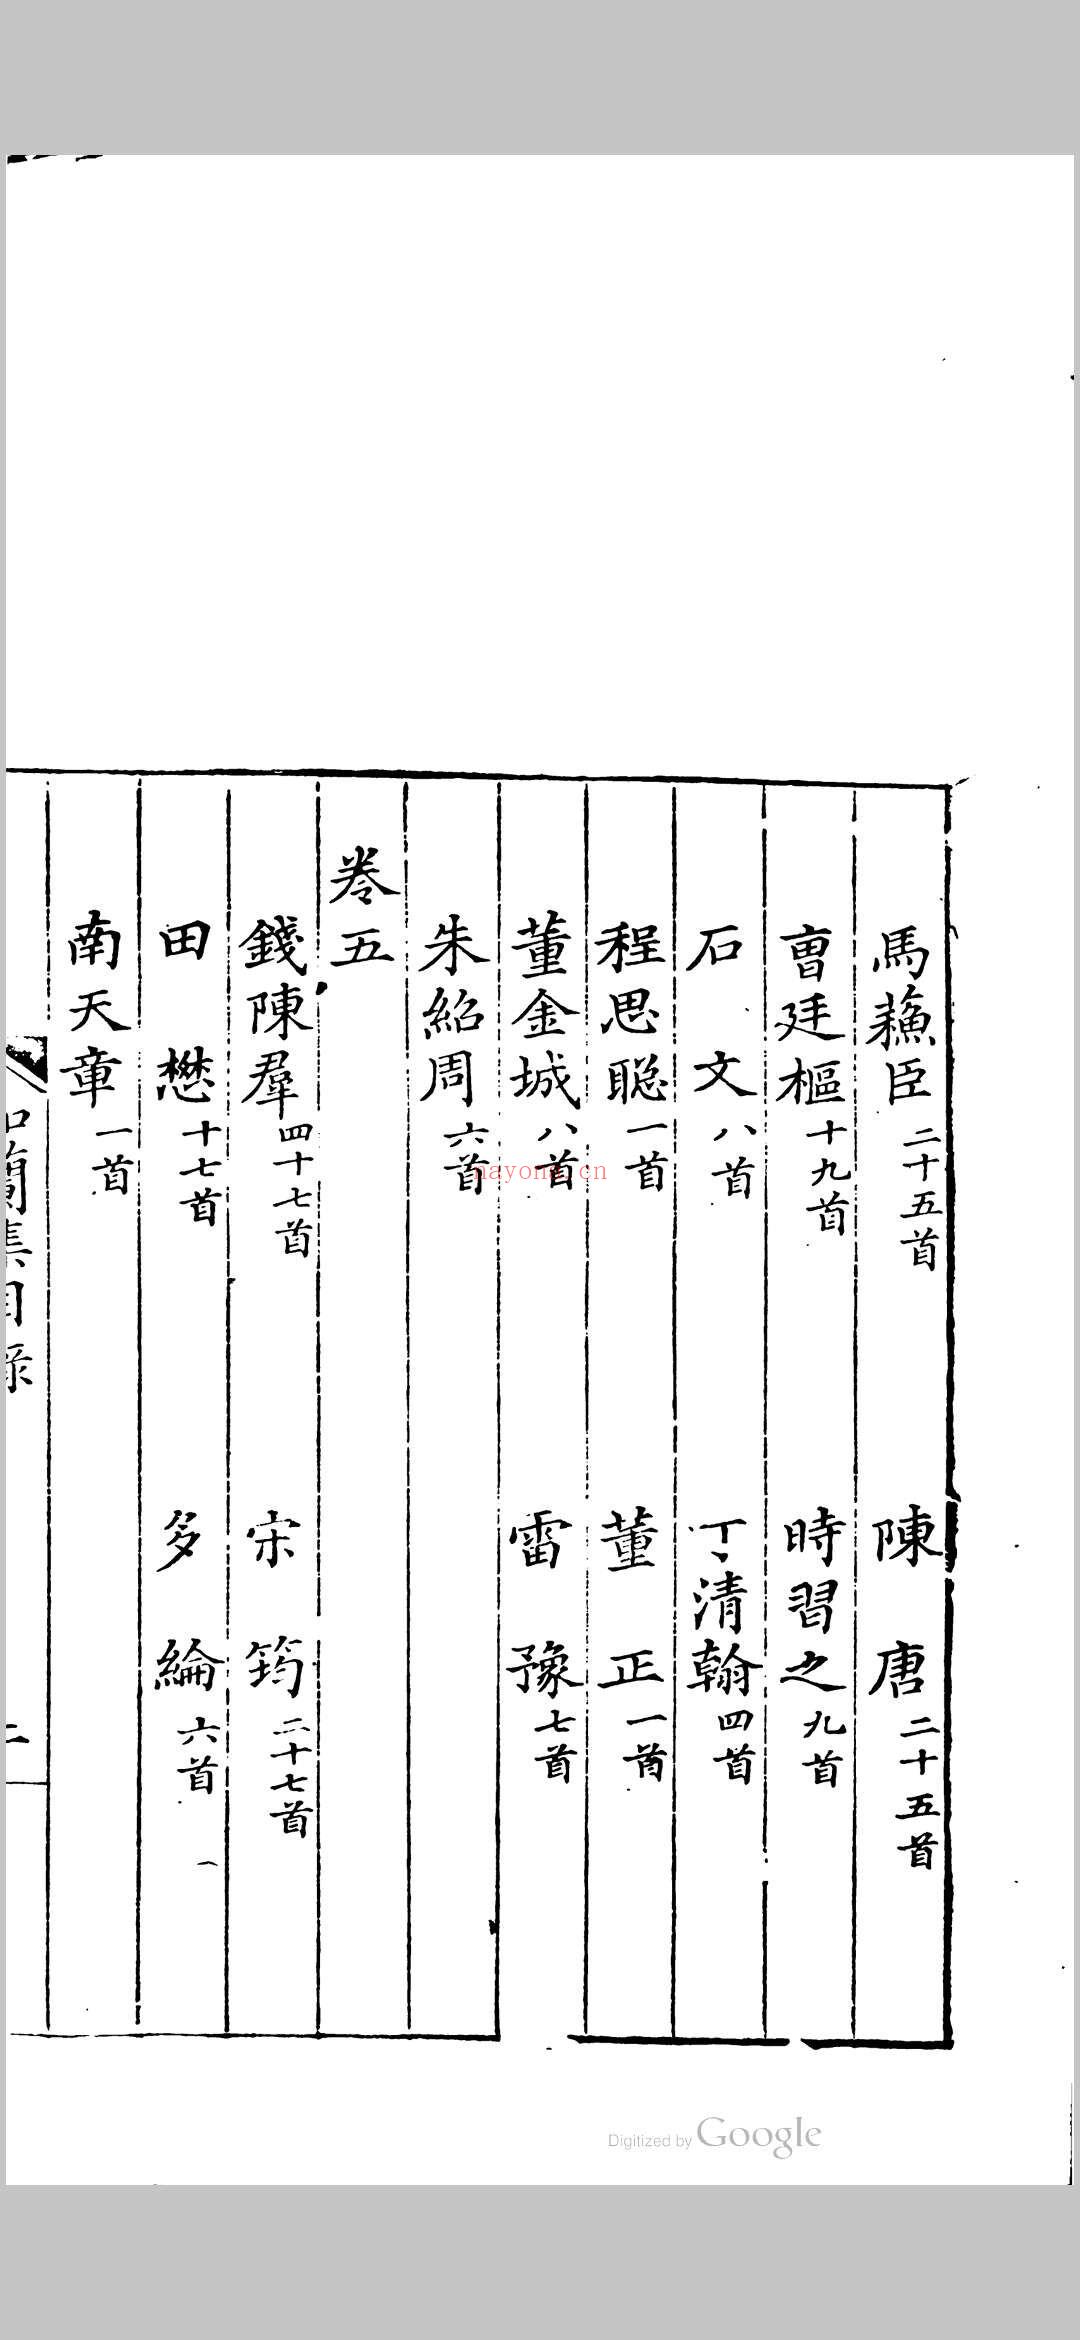 馬蘓臣二十五首 陳唐二十五首
曺廷樞十九首 時習之九首
石文八首 丁清翰四首
程思聰一首 董正一首
董金城八首 雷豫七首
朱紹周六首
卷五
錢陳羣四十七首 宋筠二十七首
田懋十七首 多綸六首
南天章一首
蘭集目錄
nayona.cn
Digitized by Google